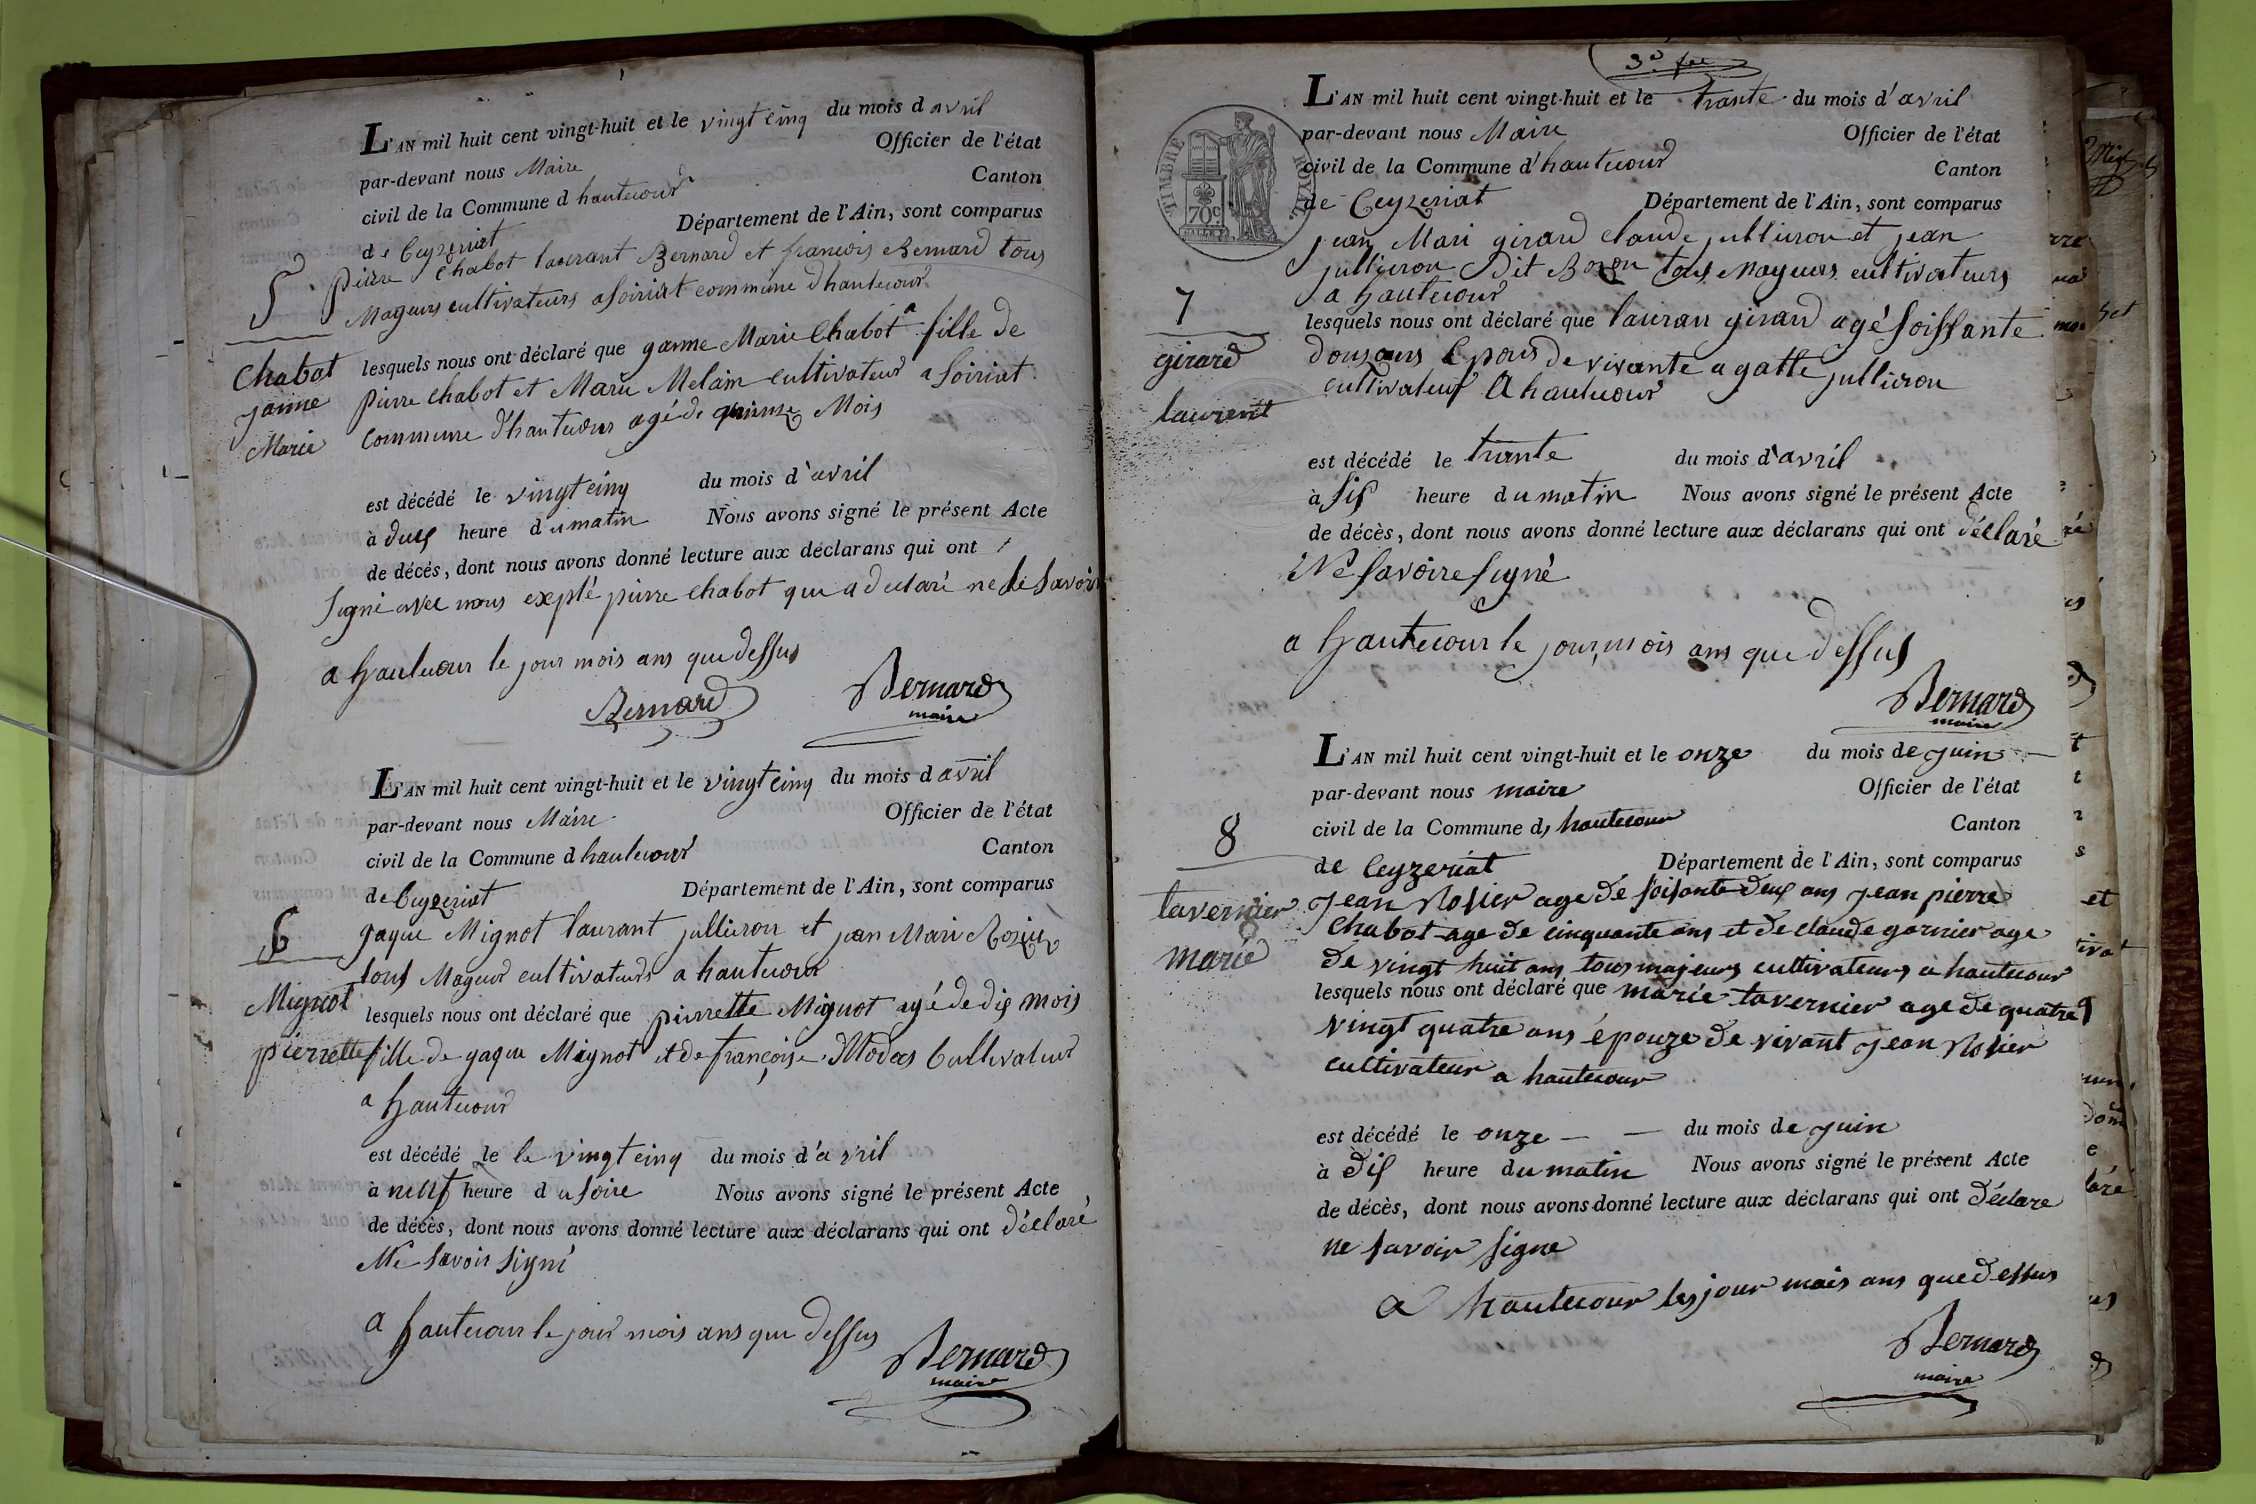 L'AN mil huit cent vingt-huit et le vingt cinq du mois d avril
par-devant nous Maire Officier de l'état
civil de la Commune d hautecour Canton
de Ceyzeriat Département de l'Ain, sont comparus
5
pierre Chabot laurant Bernard et francois Bernard tous
Mageurs cultivateurs a Soiriat commune d'hautecour
Chabot
janne
Marie
lesquels nous ont déclaré que ganne Marie Chabot a fille de
pierre Chabot et Marie Melain cultivateur a Soiriat
Commune d'hautecour agé de quinze Mois
est décédé le vingt cinq du mois d'avril
à deux heure d u matin Nous avons signé le présent Acte
de décés, dont nous avons donné lecture aux déclarans qui ont
signé avec nous explé pierre chabot qui a declaré ne le savoir
a hautecour le jour mois ans que dessus
Bernard Bernard
maire
L'AN mil huit cent vingt-huit et le vingt cinq du mois d avril
par-devant nous Maire Officier de l'état
civil de la Commune d hautecour Canton
de Ceyzeriat Département de l'Ain, sont comparus
6
Mignot
pierrette
gaque Mignot laurant jullieron et jean Marie Rozier
tous Mageur cultivateurs a hautecour
lesquels nous ont déclaré que pierrette Mignot agé de dix mois
fille de gaque Mignot et de françoise Modas Cultivateur
a hautecour
est décédé le le vingt cinq du mois d'a vril
à neuf heure d u soire Nous avons signé le présent Acte
de décès, dont nous avons donné lecture aux déclarans qui ont déclaré
Ne savoir signé
a hautecour le jour mois ans que dessus
Bernard
maire
3e feu
L'AN mil huit cent vingt-huit et le trante du mois d'avril
par-devant nous Maire Officier de l'état
civil de la Commune d'hautecour Canton
de Ceyzeriat Département de l'Ain, sont comparus
TIMBRE ROYAL
70c
7
girard
laurent
jean Mari girard claude jullieron et jean
jullieron Dit Bozon tous Mageurs cultivateurs
a hautecour
lesquels nous ont déclaré que lauran girard agé soissante
douzans Epous de vivante agatte jullieron
cultivateur A hautecour
est décédé le trante du mois d'avril
à six heure d u matin Nous avons signé le présent Acte
de décès, dont nous avons donné lecture aux déclarans qui ont déclaré
Ne savoire signé
a hautecour le jour, mois ans que dessus
Bernard
maire
L'AN mil huit cent vingt-huit et le onze du mois de juin
par-devant nous maire Officier de l'état
civil de la Commune d, hautecour Canton
de Ceyzeriat Département de l'Ain, sont comparus
8
tavernier
marie
jean Rosier age de soisante deux ans jean pierre
Chabot age de cinquante ans et de claude garnier age
de vingt huit ans tous majeurs cultivateurs a hautecour
lesquels nous ont déclaré que marie tavernier age de quatre
vingt quatre ans épouze de vivant jean Rosier
cultivateur a hautecour
est décédé le onze — — du mois de juin
à dix heure du matin Nous avons signé le présent Acte
de décès, dont nous avons donné lecture aux déclarans qui ont déclare
ne savoir signe
a hautecour les jour mois ans que dessus
Bernard
maire